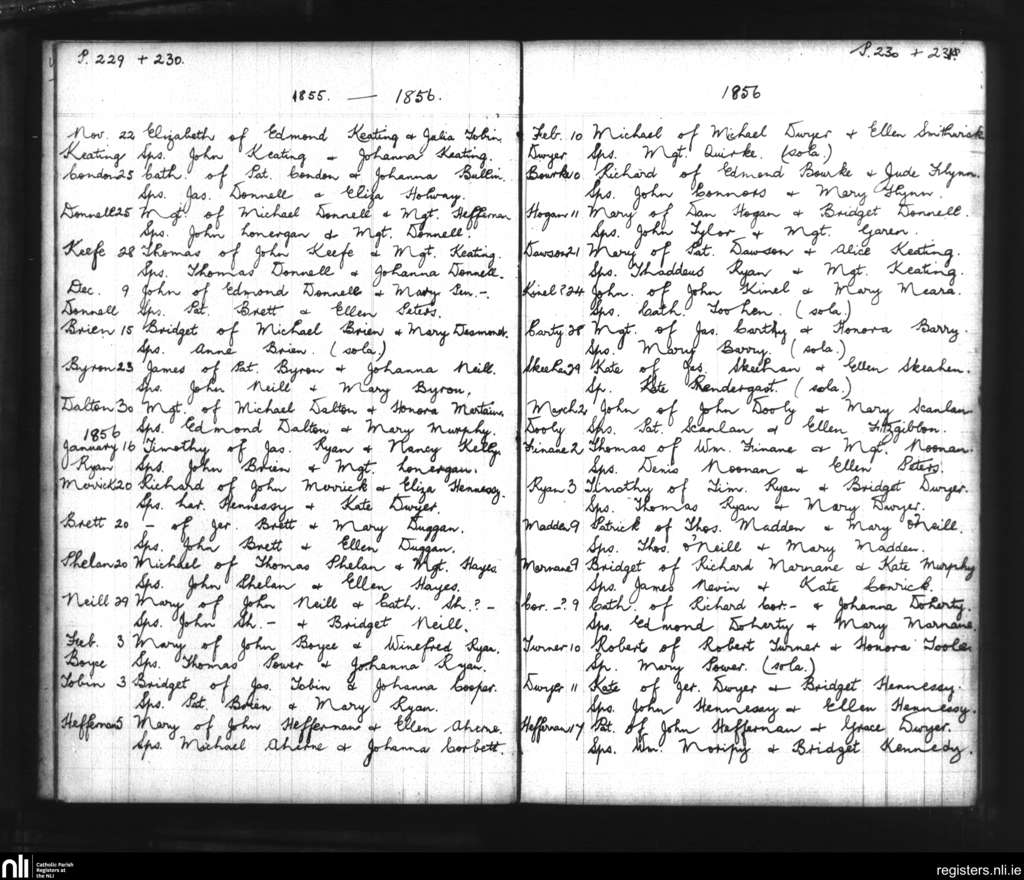 P. 229 + 230.
1855. — 1856.
Nov. 22 Elizabeth of Edmond Keating & Julia Tobin.
Keating Sps. John Keating & Johanna Keating.
Condon 25 Cath. of Pat. Condon & Johanna Bullin.
Sps. Jas. Donnell & Eliza Holway.
Donnell 25 Mgt. of Michael Donnell & Mgt. Heffernan
Sps. John Lonergan & Mgt. Donnell.
Keefe 28 Thomas of John Keefe & Mgt. Keating.
Sps. Thomas Donnell & Johanna Donnell.
Dec. 9 John of Edmond Donnell & Mary Pen.-.
Donnell Sps. Pat. Brett & Ellen Peters.
Brien 15 Bridget of Michael Brien & Mary Desmond.
Sps. Anne Brien. (sola.)
Byron 23 James of Pat. Byron & Johanna Neill.
Sps. John Neill & Mary Byron.
Dalton 30 Mgt. of Michael Dalton & Honora Mertain.
Sps. Edmond Dalton & Mary Murphy.
1856
January 16 Timothy of Jas. Ryan & Nancy Kelly.
Ryan Sps. John Brien & Mgt. Lonergan.
Merrick 20 Richard of John Merrick & Eliza Hennessy.
Sps. Lar. Hennessy & Kate Dwyer.
Brett 20 - of Jer. Brett & Mary Duggan.
Sps. John Brett & Ellen Duggan.
Phelan 20 Michael of Thomas Phelan & Mgt. Hayes
Sps. John Phelan & Ellen Hayes.
Neill 29 Mary of John Neill & Cath. Sh.? -
Sps. John Sh.- & Bridget Neill.
Feb. 3 Mary of John Boyce & Winefred Ryan.
Boyce Sps. Thomas Power & Johanna Ryan.
Tobin 3 Bridget of Jas. Tobin & Johanna Cooper.
Sps. Pat. Brien & Mary Ryan.
Heffernan 5 Mary of John Heffernan & Ellen Aherne.
Sps. Michael Aherne & Johanna Corbett.
P. 230 +
1856
Feb. 10 Michael of Michael Dwyer & Ellen Smithwick
Dwyer Sps. Mgt. Quirke. (sola.)
Bourke 10 Richard of Edmond Bourke & Jude Flynn.
Sps. John Connors & Mary Flynn.
Hogan 11 Mary of Dan Hogan & Bridget Donnell.
Sps. John Tylor & Mgt. Garen.
Dawson 21 Mary of Pat. Dawson & Alice Keating.
Sps. Thaddeus Ryan & Mgt. Keating.
Kinel? 24 John. of John Kinel & Mary Meara.
Sps. Cath. Toohen. (sola)
Carty 28 Mgt. of Jas. Carthy & Honora Barry.
Sps. Mary Barry. (sola.)
Skeehan 29 Kate of Jas. Skeehan & Ellen Skeahen.
Sp. Kate Prendergast (sola.)
March 2 John of John Dooly & Mary Scanlan
Dooly Sps. Pat. Scanlan & Ellen Fitzgibbon.
Finane 2 Thomas of Wm. Finane & Mgt. Noonan.
Sps. Denis Noonan & Ellen Peters.
Ryan 3 Timothy of Tim. Ryan & Bridget Dwyer.
Sps. Thomas Ryan & Mary Dwyer.
Madden 9 Patrick of Thos. Madden & Mary O'Neill.
Sps. Thos. O'Neill & Mary Madden.
Marnane 9 Bridget of Richard Marnane & Kate Murphy
Sps. James Nevin & Kate Conrick.
Cor. -? 9 Cath. of Richard Cor.- & Johanna Doherty.
Sps. Edmond Doherty & Mary Marnane.
Turner 10 Roberts of Robert Turner & Honora Toole.
Sp. Mary Power. (sola.)
Dwyer 11 Kate of Jer. Dwyer & Bridget Hennessy.
Sps. John Hennessy & Ellen Hennessy.
Heffernan 17 Pat. of John Heffernan & Grace Dwyer.
Sps. Wm. & Bridget Kennedy.
nli
Catholic Parish
Registers at
the NLI
registers.nli.ie